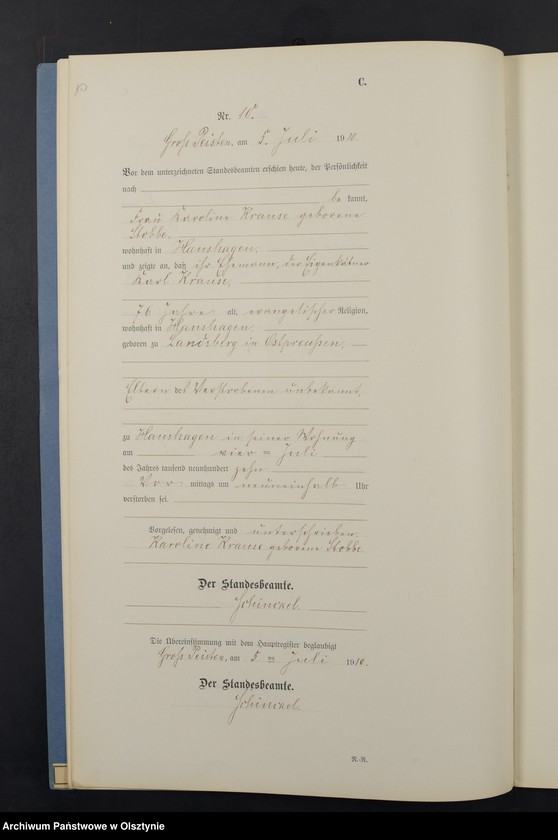 C.
Nr. 10.
Groß Peisten, am 5. Juli 1910.
Vor dem unterzeichneten Standesbeamten erschien heute, der Persönlichkeit
nach
be kannt,
Frau Karoline Krause geborene
Stobbe,
wohnhaft in Hanshagen,
und zeigte an, daß ihr Ehemann, der Eigenkätner
Karl Krause,
76 Jahre alt, evangelischer Religion,
wohnhaft in Hanshagen,
geboren zu Landsberg in Ostpreußen,
Eltern des Verstorbenen unbekannt,
zu Hanshagen in seiner Wohnung
am vier = Juli
des Jahres tausend neunhundert zehn
Vor mittags um neuneinhalb Uhr
verstorben sei.
Vorgelesen, genehmigt und unterschrieben.
Karoline Krause geborene Stobbe
Der Standesbeamte.
Die Übereinstimmung mit dem Hauptregister beglaubigt
Groß Peisten, am 5 = Juli 1910.
Der Standesbeamte.
R.-R.
Archiwum Państwowe w Olsztynie